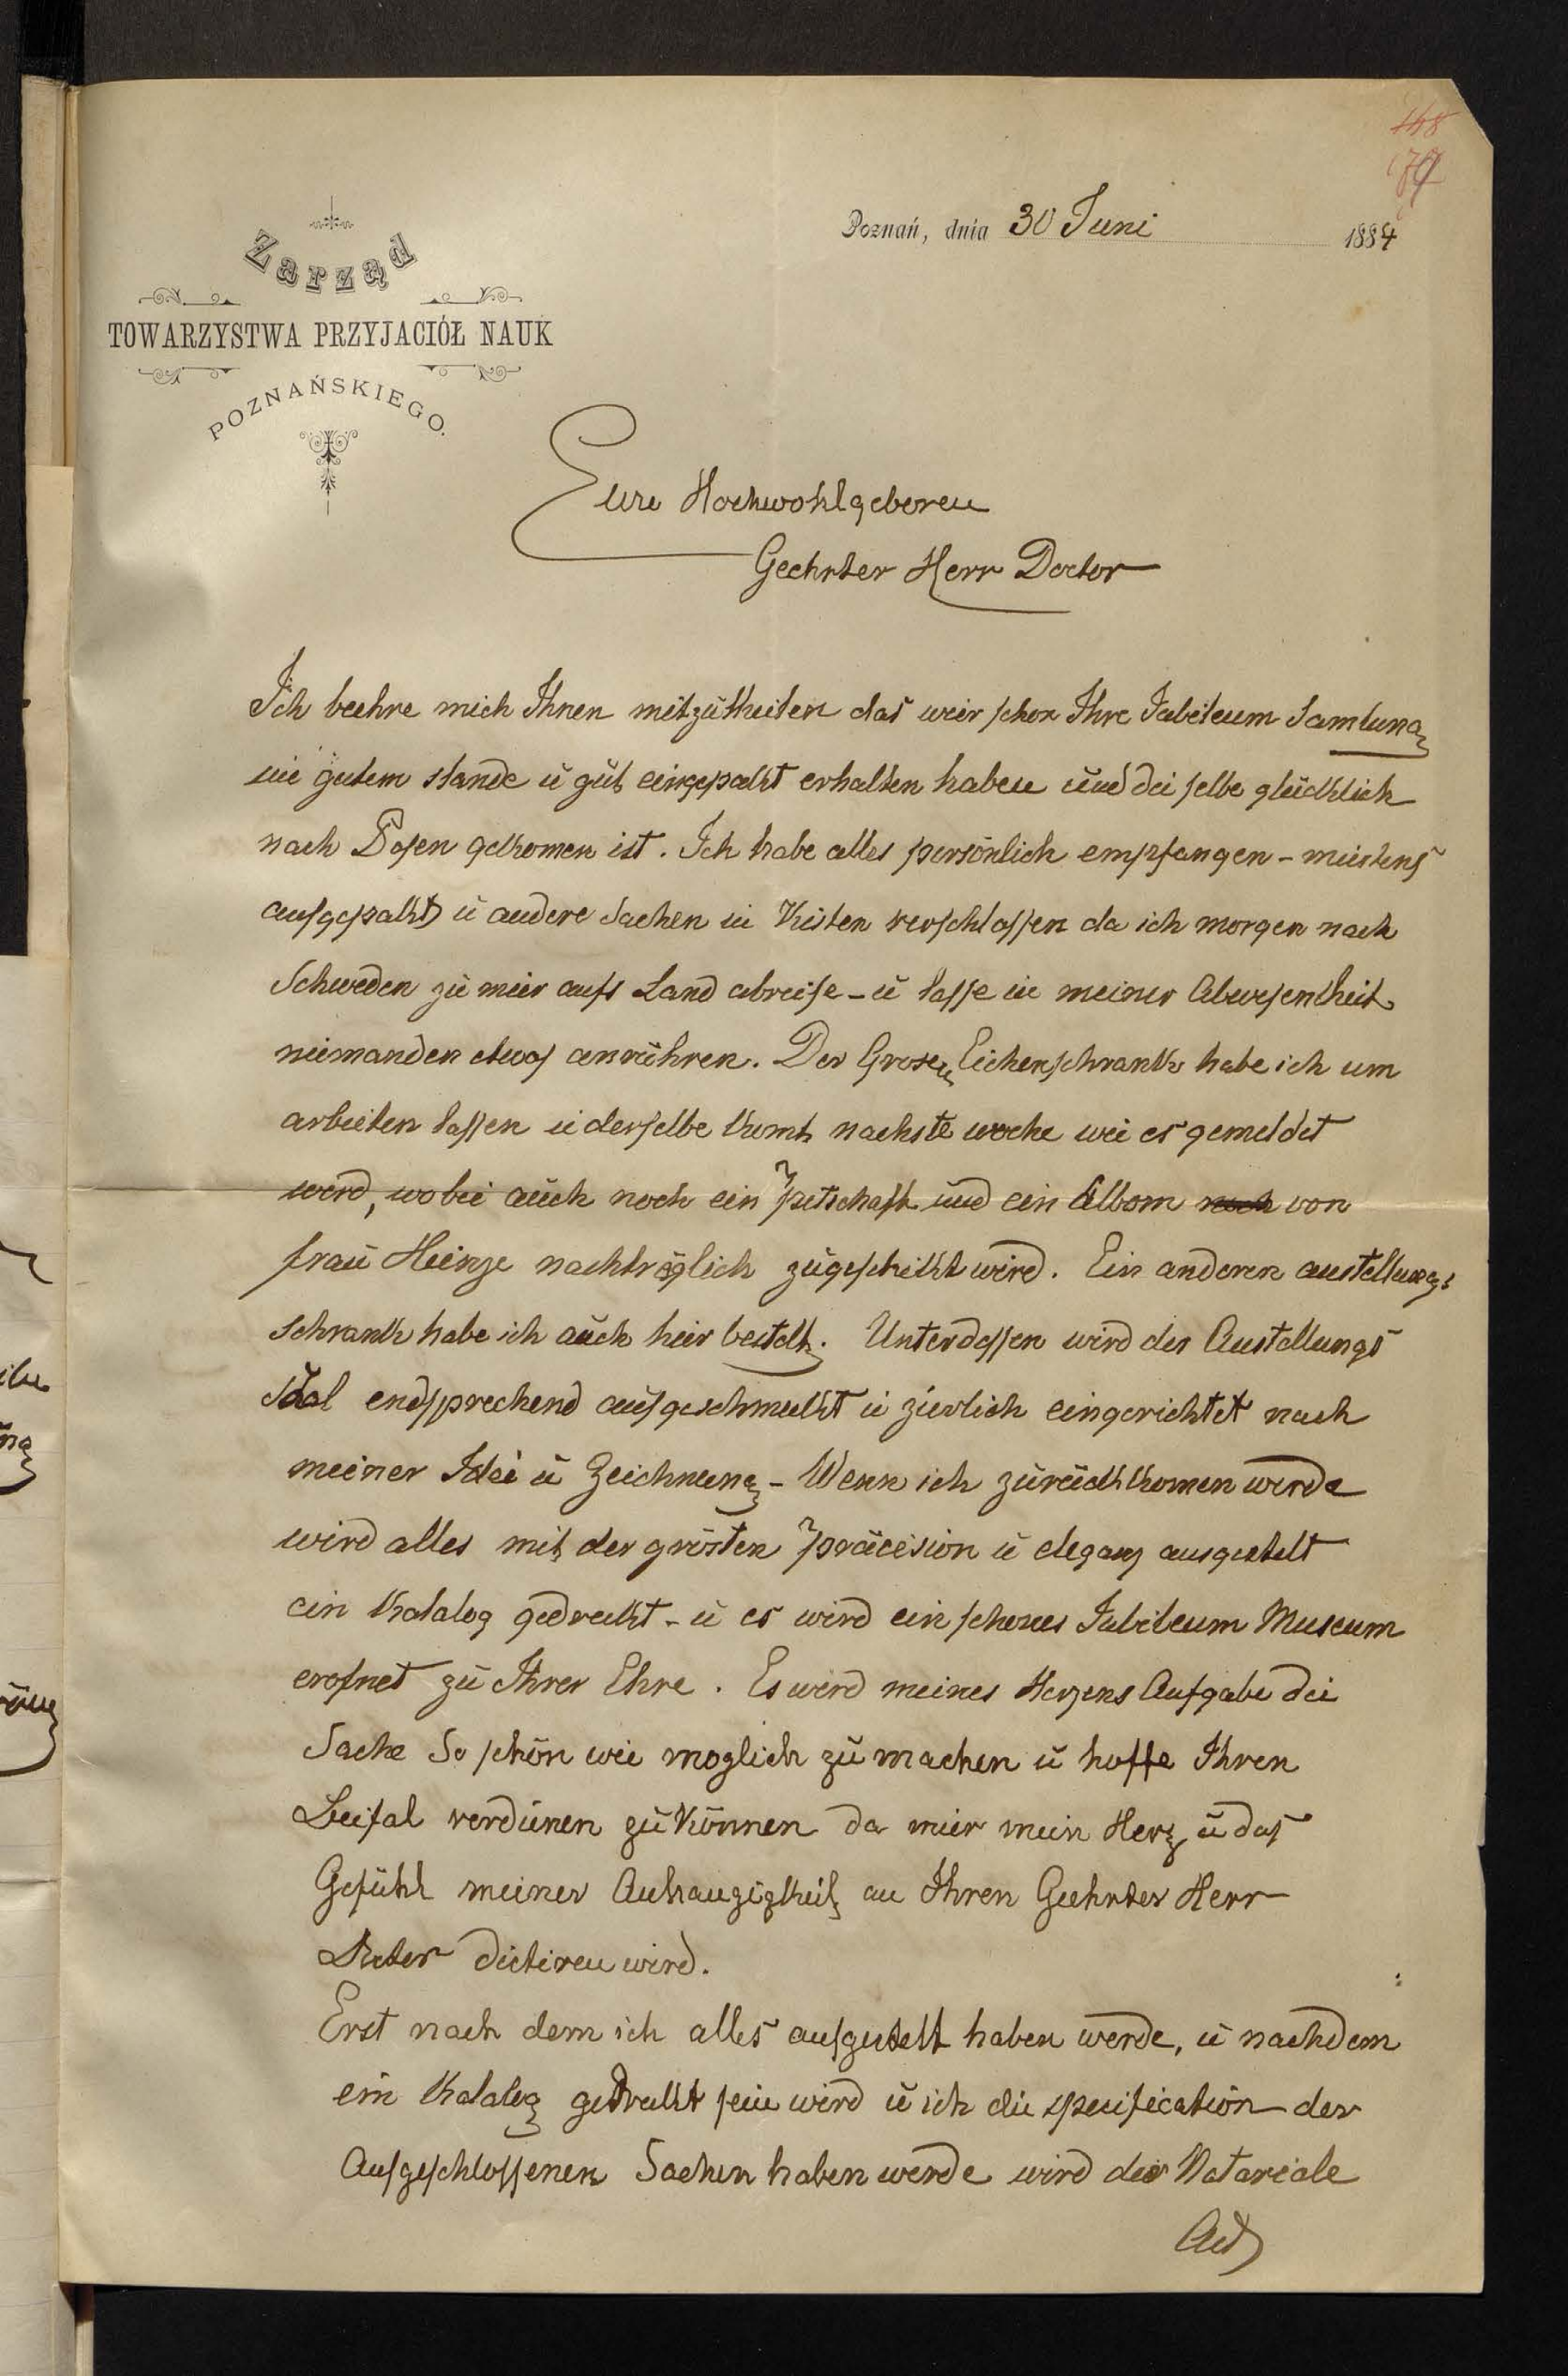 Zarząd
TOWARZYSTWA PRZYJACIÓŁ NAUK
POZNAŃSKIEGO.
Poznań, dnia 30 Juni 1884
Eure Hochwohlgeboren
Geehrter Herr Doctor
Ich beehre mich Ihnen mitzutheilen das weir schon Ihre Jubileum Samlung
in gutem stande u gut eingepakt erhalten haben und dei selbe glücklich
nach Posen gekomen ist. Ich habe alles persönlich empfangen - meistens
aufgepakt u andere Sachen in Kisten verschlossen da ich morgen nach
Schweden zu meir aufs Land abreise - u lasse in meiner Abwesentheit
niemanden etwas anrühren. Der Grosen Eichenschrank habe ich um
arbeiten lassen u derselbe kumt nachste woche wie es gemeldet
werd, wobei auch noch ein petschaft und ein Albom noch von
frau Heinze nachträglich zugeschikt wird. Ein anderen austellungs
schrank habe ich auch heir bestelt. Unterdessen wird der Austellungs
Saal endsprechend aufgeschmukt u zierlich eingerichtet nach
meiner Idei u Zeichnung - Wenn ich zurückkomen werde
wird alles mit der grösten präcision u eleganz ausgestelt
ein Katalog gedrukt - u es wird ein schones Jubileum Museum
erofnet zu Ihrer Ehre. Es werd meines Herzens Aufgabe dei
Sache So schön wie moglich zu machen u hoffe Ihren
Beifal verdinen zu können da mier mein Herz u das
Gefühl meiner Anhangigkeit an Ihren Geehrter Herr
Docter dictiren wird.
Erst nach dem ich alles aufgestelt haben werde, u nachdem
ein Katalog gedrukt sein wird u ich die specification der
Aufgeschlossenen Sachen haben werde wird der Notariale
Act